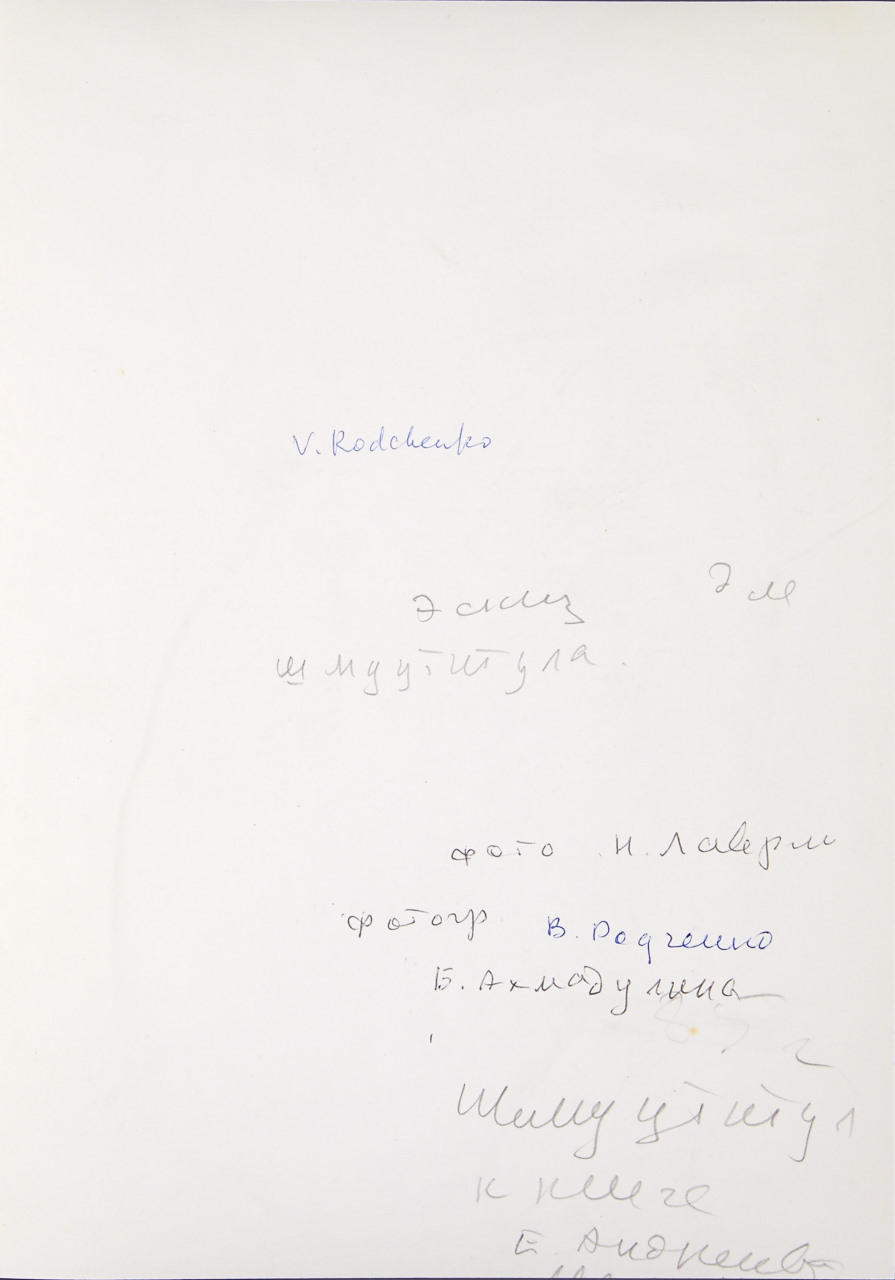 V. Rodchenko
Эскиз
шмуцтитула.
фото Н. Лаверм
фотогр В. Родченко
Б. Ахмадулина
Шмуцтитул
к книге
Е. Андреева